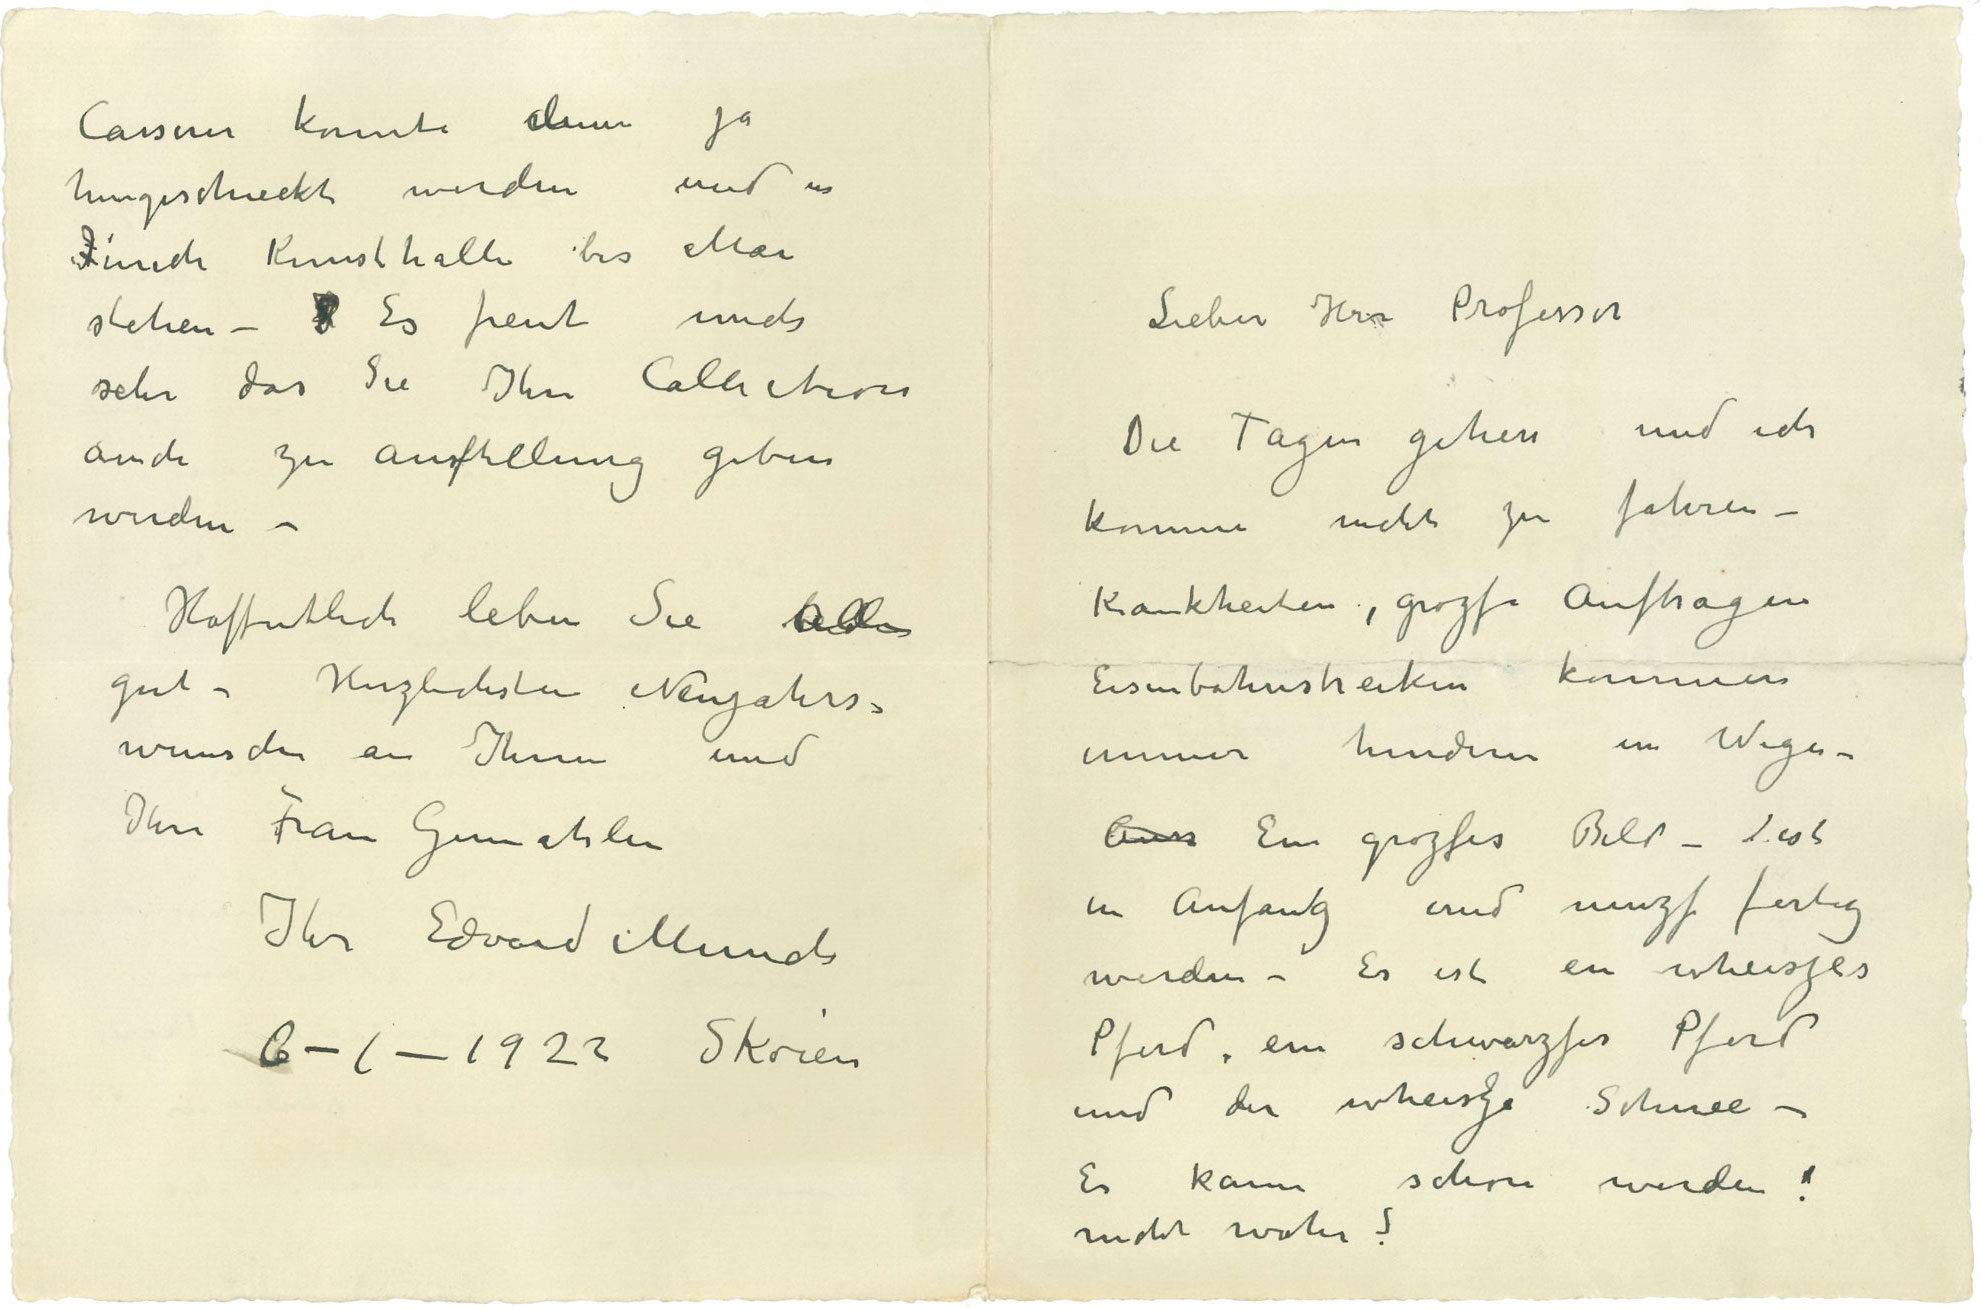 Lieber Herr Professor
Die Tagen gehen und ich
komme nicht zu fahren –
Krankheiten, grozse Auftragen
Eisenbahnstreiken kommen
immer hindern im Wege –
Ein grozses Bild – ist
in Anfang und muzs fertig
werden – Es ist ein wheiszes
Pferd, ein schwarzses Pferd
und der wheisze Schnee –
Es kann schon werden!
nicht wahr?
Cassirer konnte dann ja
hingeschieckt werden und in
Zürich Kunsthalle bis Mai
stehen – Es freut mich
sehr das Sie Ihre Collection
auch zu austellung geben
werden –
Hoffentlich leben Sie
gut – Herzlichsten Neujahrs=
wunsche an Ihnen und
Ihre Frau Gemahlin
Ihr Edvard Munch
6 – 1 – 1922 Skøien